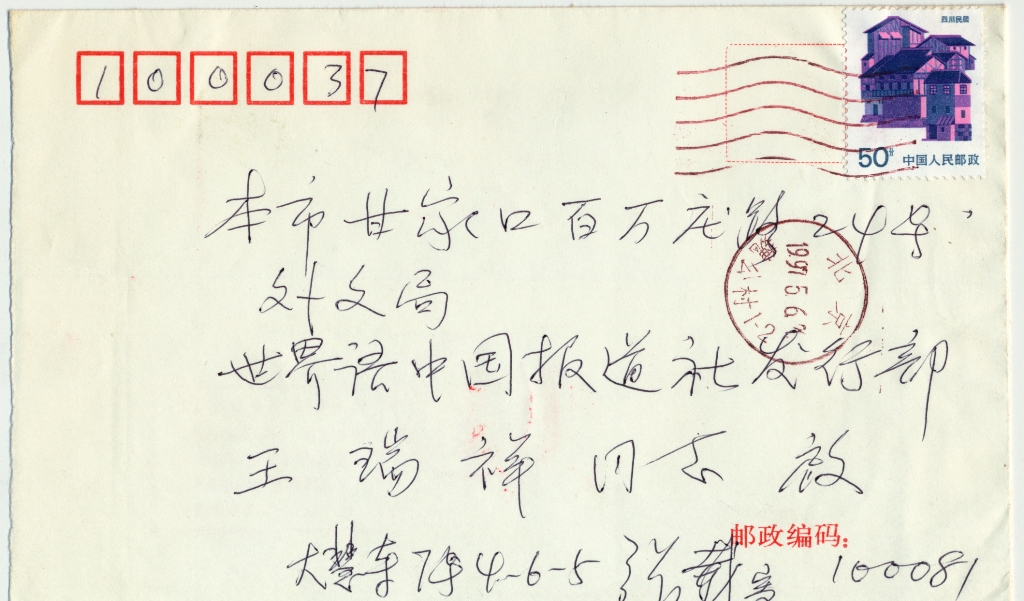 100037
四川民居
50分 中国人民邮政
本市甘家口百万庄路24号
外文局
北京
1997.5.6
世界语中国报道社发行部
王瑞祥同志 启
邮政编码:
大慧寺 4-6-5 张 100081